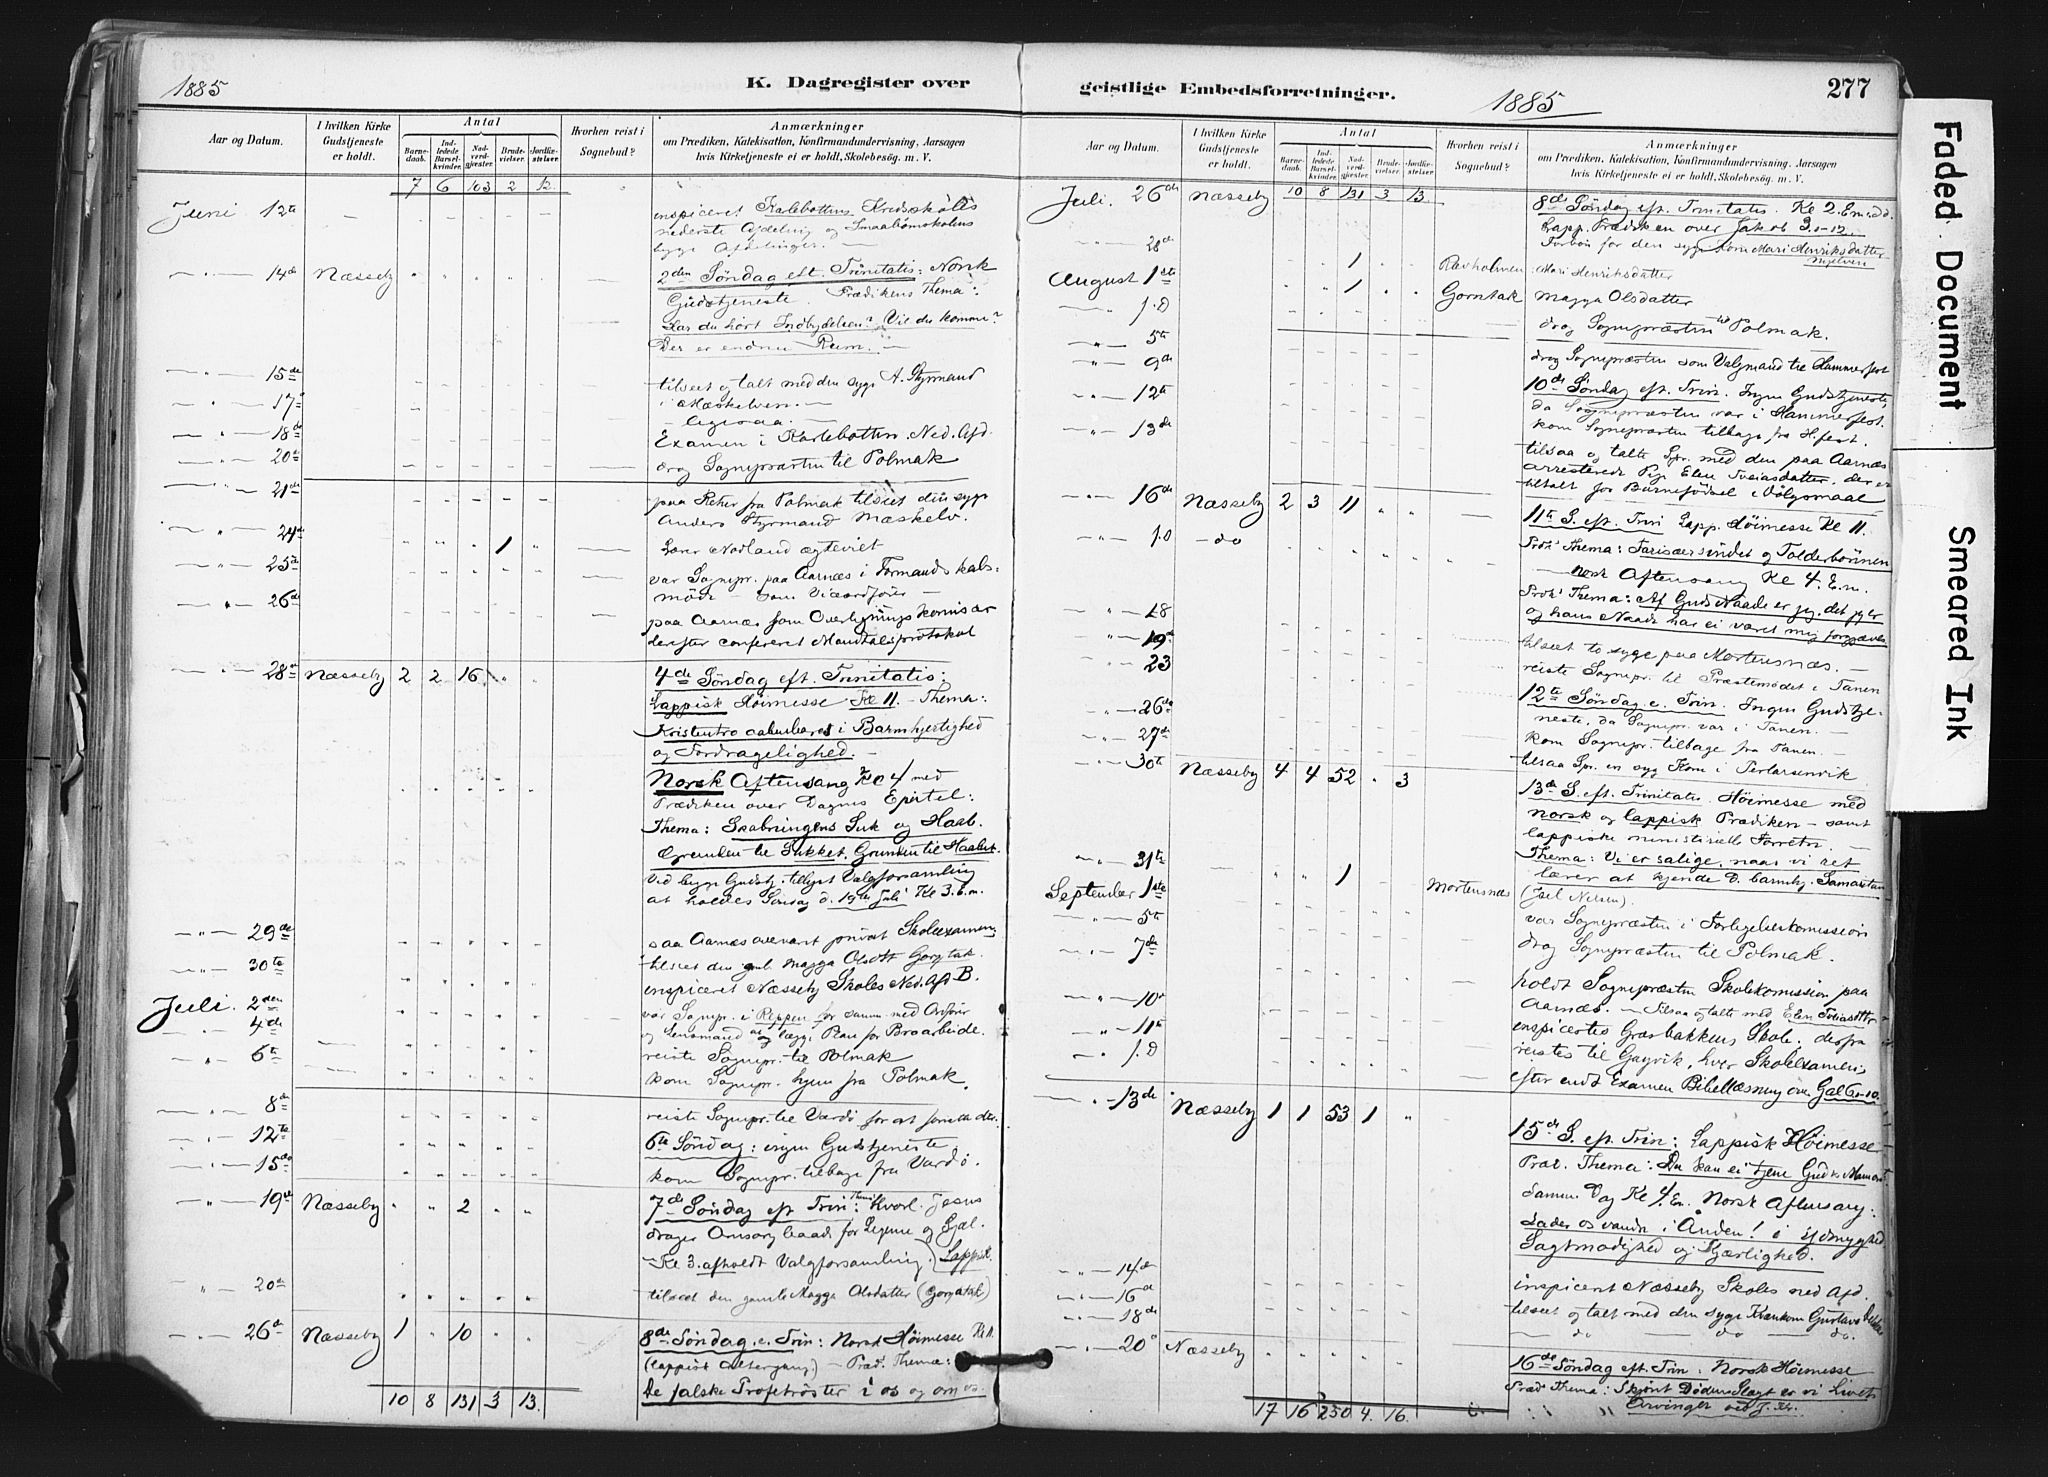 1885
K. Dagregister over
Aar og Datum.
I hvilken Kirke Gudstjeneste er holdt.
Antal
Barnedaab.
Indledede Barselkvinder.
Nadverdgjester.
Brudevielser.
Jordfæstelser
Hvorhen reist i Sognebud?
Anmærkninger
om Prædiken, Katekisation, Konfirmandundervisning, Aarsagen
hvis Kirketjeneste ei er holdt, Skolebesög. m. V.
7 6 103 2 12.
Juni 12te inspiceret Karlebottens Kredsskoles
nederste Afdeling og Smaabørnsskolens
begge Afdelinger. —
14de Næsseby 2den Søndag eft. Trinitatis: Norsk
Gudstjeneste. Prædikens Thema:
Har du hört Indbydelsen? Vil du komme?
Der er endnu Rum. —
15de tilseet og talt med den syge A. Styrmand
i Mæskelven. —
17 — ligesaa. —
18de Examen i Karlebotten. Ned. Afd.
20de drog Sognepræsten til Polmak
21de paa Reter fra Polmak tilseet den syge
Anders Styrmand Mæskelv.
24de 1 Lærer Nodland ægteviet
25de var Sognepr. paa Aarnæs i Formandskabs-
möde — som Viceordfører —
26de paa Aarnæs som Overligningskomisær
derefter confereret Mandtalsprotokol
28de Næsseby 2 2 16 4de Søndag eft. Trinitatis:
Lappisk Høimesse Kl 11. — Thema:
Kristentro aabenbares i Barmhjertighed
og Fordragelighed. —
Norsk Aftensang Kl 4 med
Prædiken over Dagens Epistel:
Thema: Skabningens Suk og Haab.
Grunden til Sukket. Grunden til Haabet.
Ved begge Gudstj. tillyst Valgforsamling
at holdes Søndag d. 19de Juli Kl 3. E.m.
29de paa Aarnæs overværet privat Skoleexamen
30te tilseet den gml. Magga Olsdtr Gorntak.
Juli. 2den inspiceret Næsseby Skoles Ned. Afd B.
4de var Sognepr. i Reppen for samm. med Ordfører
og Lensmand at lægge Plan for Broarbeide.
6te reiste Sognepr. til Polmak
kom Sognepr. hjem fra Polmak.
8de reiste Sognepr. til Vardö for at
12te 6te Søndag: ingen Gudstjeneste
15de kom Sognepr. tilbage fra Vardö.
19de Næsseby 2 7de Søndag eft Trin: Thema: Hvorl. Jesus
drager Omsorg baade for Legeme og Sjæl.
— Kl 3. afholdt Valgforsamling. (Lappisk.
20de tilseet den gamle Magga Olsdatter (Gorntak)
26de Næsseby 1 10 8de Søndag e. Trin: Norsk Høimesse Kl 11.
(lappisk Altergang.) — Præd. Thema:
De falske Profetröster i os og om os.
10 8 131 3 13.
geistlige Embedsforretninger.
1885
277
Aar og Datum.
I hvilken Kirke Gudstjeneste er holdt.
Antal
Barnedaab.
Indledede Barselkvinder.
Nadverdgjester.
Brudevielser.
Jordfæstelser
Hvorhen reist i Sognebud?
Anmærkninger
om Prædiken, Katekisation, Konfirmandundervisning, Aarsagen
hvis Kirketjeneste ei er holdt, Skolebesög. m. V.
Juli. 26de Næsseby 10 8 131 3 13. 8de Søndag eft. Trinitatis. Kl 2. Em.
Lapp. Prædiken over Jakob 3. 1-12.
Forbön for den syge Kone Mari Henriksdatter
28de 1 Rævholmen Mari Henriksdatter
August 1ste 1 Gorntak Magga Olsdatter
s. D drog Sognepræsten til Polmak.
5te drog Sognepræsten som Valgmand til Hammerfest
9de 10de Søndag eft. Trin. Ingen Gudstjeneste,
da Sognepræsten var i Hammerfest.
12te kom Sognepræsten tilbage fra H.fest.
13de tilsaa og talte Spr. med den paa Aarnæs
arresterede Pige Elen Tobiasdatter, der er
tiltalt for Barnefödsel i Dölgsmaal
16de Næsseby 2 3 11 11te S. eft. Trin Lapp. Høimesse Kl 11.
Præd. Thema: Farisæersindet og Tolderbönnen
s. D — do — norsk Aftensang Kl 4. E.m.
Præd. Thema: Af Guds Naade er jeg, det jeg er
og hans Naade har ei været mig forgjæves
18 tilseet to syge paa Mortensnæs. —
19de reiste Sognepr. til Præstemödet i Tanen
23 12te Søndag e. Trin. Ingen Gudstje-
neste, da Sognepr. var i Tanen. —
26de kom Sognepr. tilbage fra Tanen. —
27de tilsaa Spr. en syg Kone i
30te Næsseby 4 4 52 3 13de S. eft. Trinitatis. Høimesse med
norsk og lappisk Prædiken — samt
lappiske ministerielle Forretn. —
Thema: Vi er salige, naar vi ret
lærer at kjende d. barmhj. Samaritan
31te 1 Mortensnæs (Joel Nilsen).
September 1ste var Sognepræsten i Forligelseskomission
5te drog Sognepræsten til Polmak.
7de holdt Sognepræsten Skolekomission paa
Aarnæs. — Tilsaa og talte med Elen Tobiasdtr
10de inspicertes Græsbakkens Skole, derfra
11te reistes til Gayvik, hver Skoleexamen;
s. D efter endt Examen Bibellæsning over Gal 6
13de Næsseby 1 1 53 1 15de S. eft. Trin: Lappisk Høimesse
Præd. Thema: Du kan ei tjene Gud & Mamon
Samme Dag Kl 4. Em. Norsk Aftensang:
Lader os vandre i Ånden! i Ydmyghed
Sagtmodighed og Kjærlighed.
14de inspiceret Næsseby Skoles ned Afd.
16de tilseet og talt med den syge Kvænkone
18de — do — do — do.
20de Næsseby 16de Søndag eft. Trin. Norsk Høimesse
Præd Thema: Skjönt Dödens Slagt er vi Livets
Arvinger ved J. Kr.
17 16 250 4. 16.
Faded Document
Smeared Ink